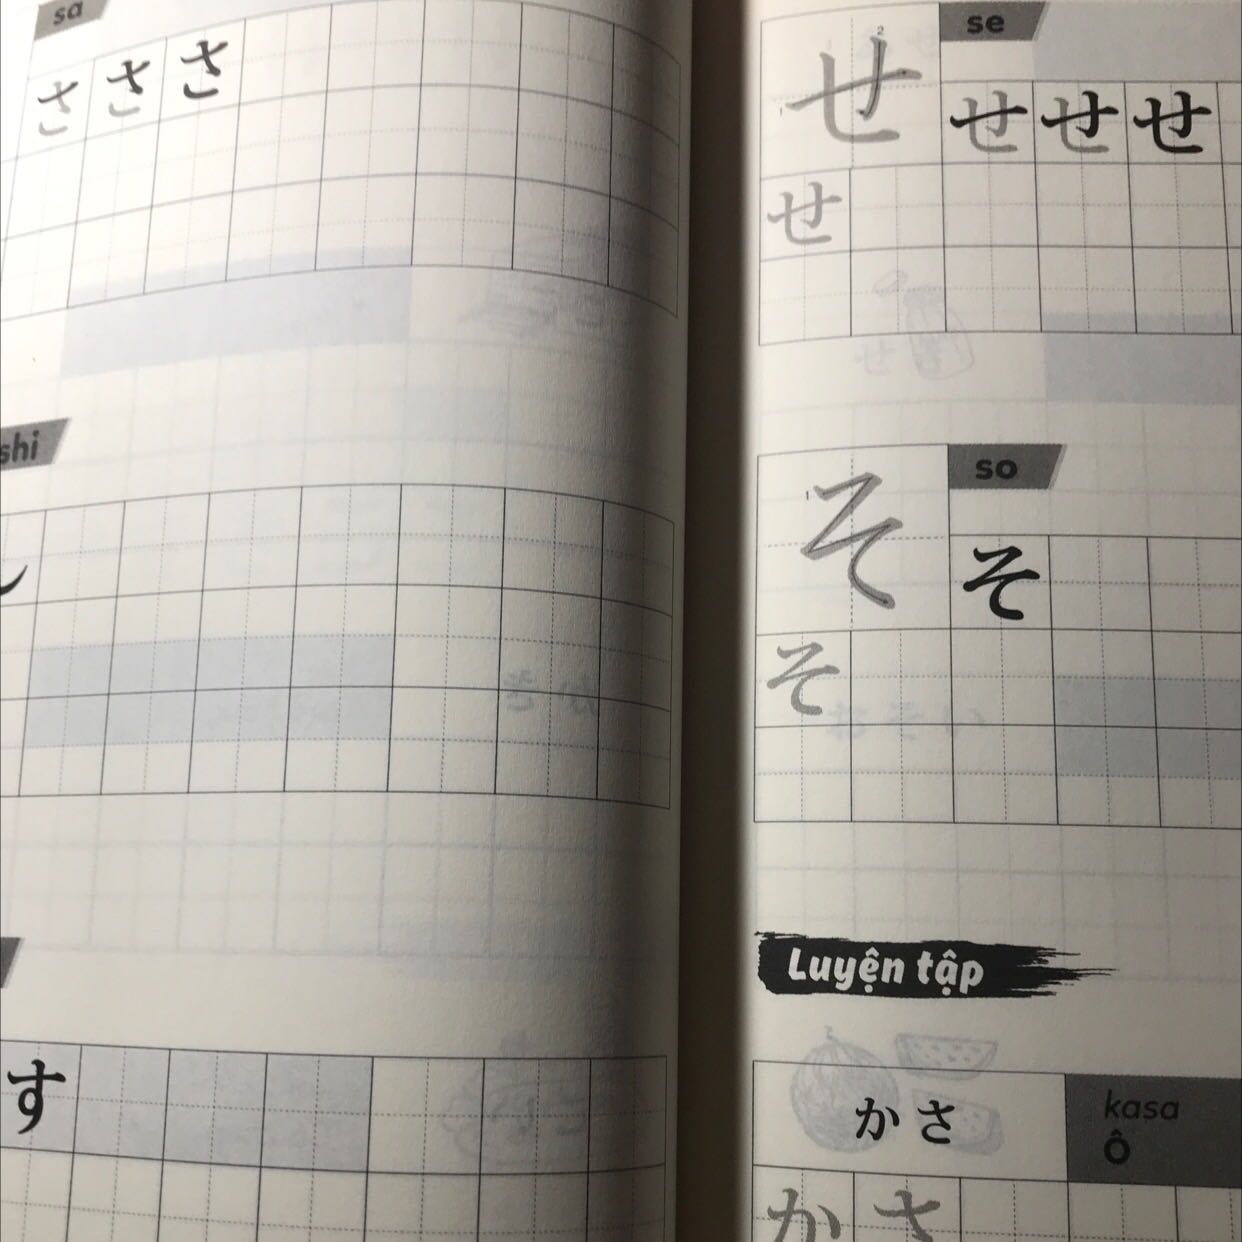 sa
さささ
shi
し
す
se
せせせせ
せ
so
そそ
そ
Luyện tập
かさ
kasa
Ô
かさ